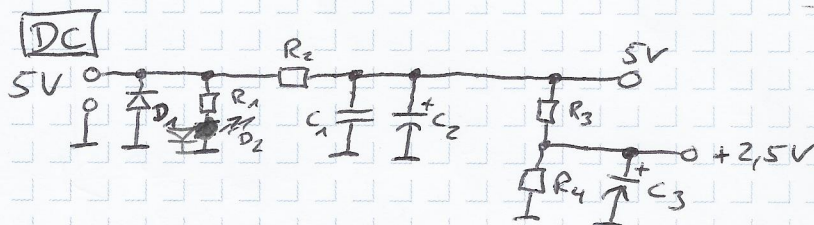 DC
5V
D1
R1
D2
R2
C1
+
C2
5V
R3
R4
+
C3
+2,5V